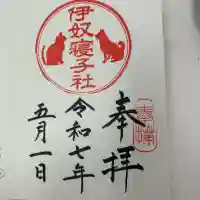 伊奴寝子社
奉拝
令和七年
五月一日